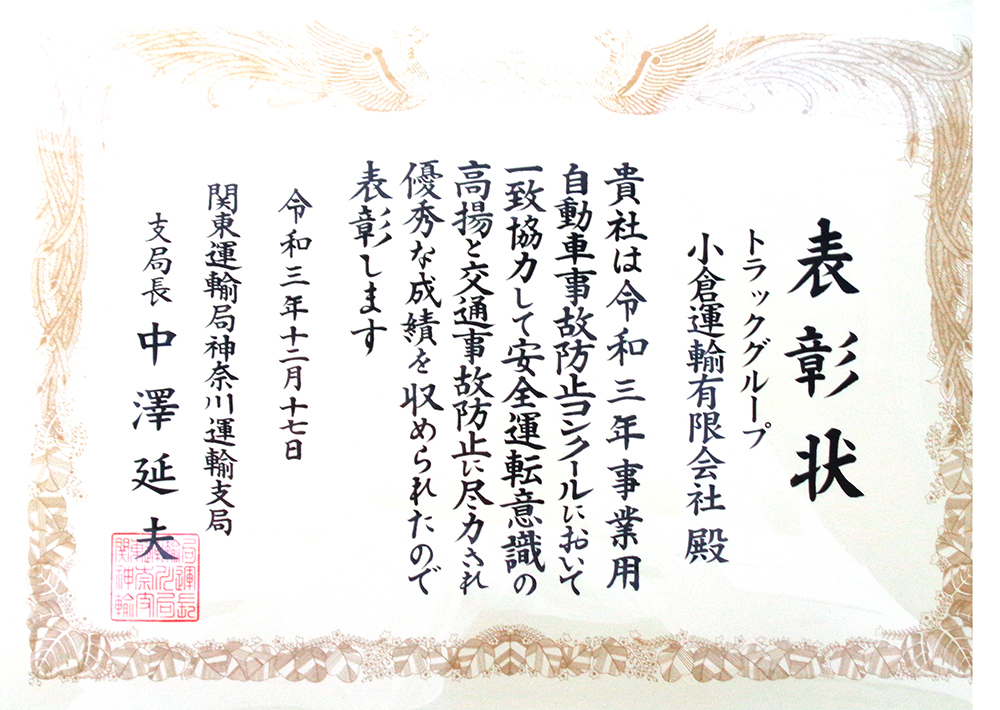 表彰状
トラックグループ
小倉運輸有限会社 殿
貴社は令和三年事業用
自動車事故防止コンクールにおいて
一致協力して安全運転意識の
高揚と交通事故防止に尽力され
優秀な成績を収められたので
表彰します
令和三年十二月十七日
関東運輸局神奈川運輸支局
支局長 中澤延夫